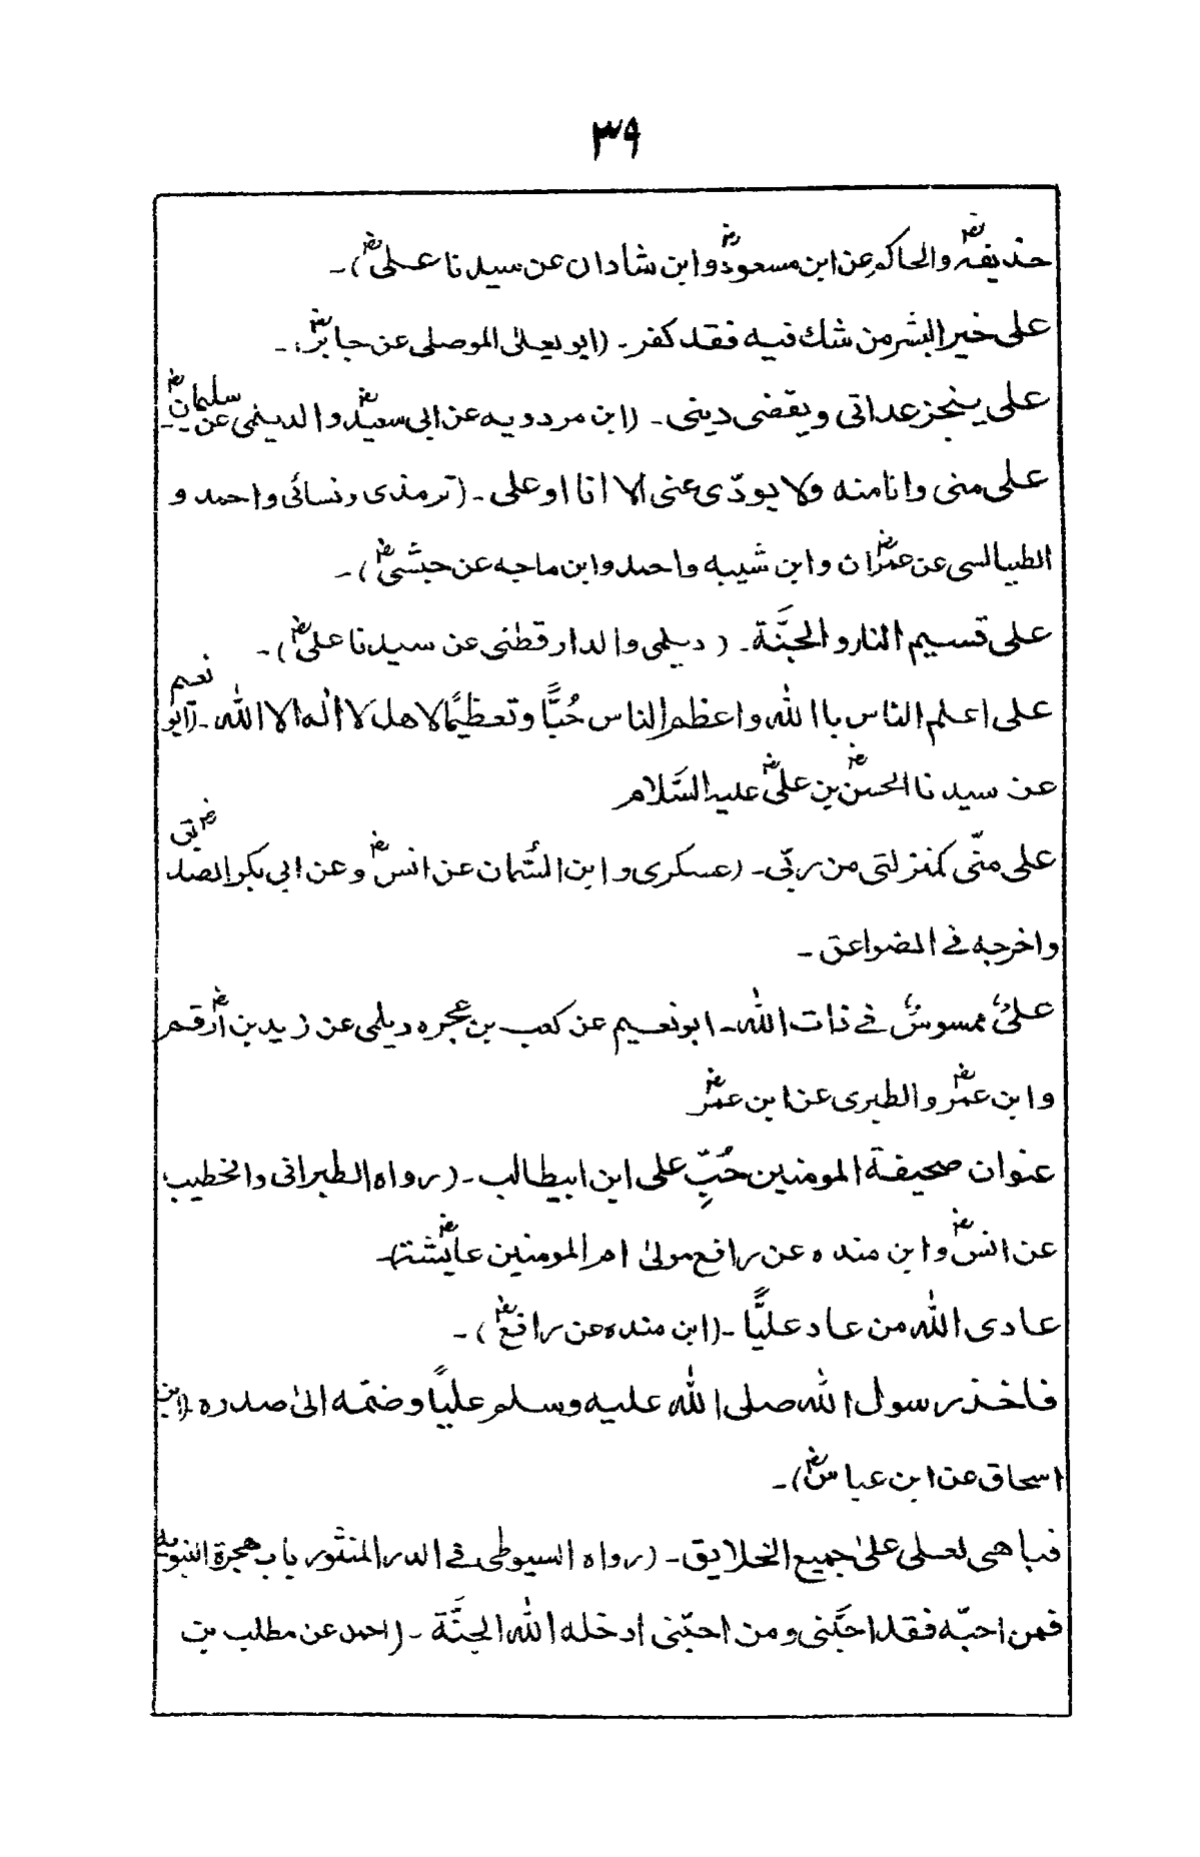 ۳۹
حذیفہؓ والحاکم عن ابن مسعودؓ وابن شادان عن سیدنا علیؓ)۔
علی خیر البشر من شك فیه فقد کفر۔ (ابو یعلیٰ الموصلی عن جابرؓ)۔
علی ینجز عداتی ویقضی دینی۔ (ابن مردویه عن ابی سعیدؓ والدیلمی عن سلیمانؓ)۔
علی منی وانا منه ولا یودّی عنی الا انا او علی۔ (ترمذی ونسائی واحمد و
الطیالسی عن عمرانؓ وابن شیبه واحمد وابن ماجه عن حبشیؓ)۔
علی قسیم النار والجنَّة۔ (دیلمی والدارقطنی عن سیدنا علیؓ)۔
علی اعلم الناس باالله واعظم الناس حُبًّا وتعظیمًا لاهل لا اله الا الله۔ (ابو نعیم
عن سیدنا الحسنؓ بن علیؓ علیه السَّلام
علی منّی کمنزلتی من ربّی۔ (عسکری وابن السُّمان عن انسؓ وعن ابی بکر الصدیقؓ
واخرجه فے الضواعق۔
علیٌ ممسوسٌ فے ذات الله۔ ابونعیم عن کعب بن عجره دیلمی عن زید بن ارقمؓ
وابن عمرؓ والطبری عن ابن عمرؓ
عنوان صحیفة المومنین حُبِّ علی ابن ابیطالب۔ (رواه الطبرانی والخطیب
عن انسؓ وابن منده عن رافع مولیٰ ام المومنین عایشتهؓ)۔
عادی الله من عاد علیًّا۔ (ابن منده عن رافعؓ)۔
فاخذ رسول الله صلی الله علیه وسلم علیًا وضمّه الیٰ صدره (ابن
اسحاق عن ابن عباسؓ)۔
فباهی لعلی علیٰ جمیع الخلایق۔ (رواه السیوطی فے الدر المنثور باب هجرة النبویه
فمن احبّه فقد احبَّنی ومن احبّنی ادخله الله الجنَّة۔ (احمد عن مطلب بن